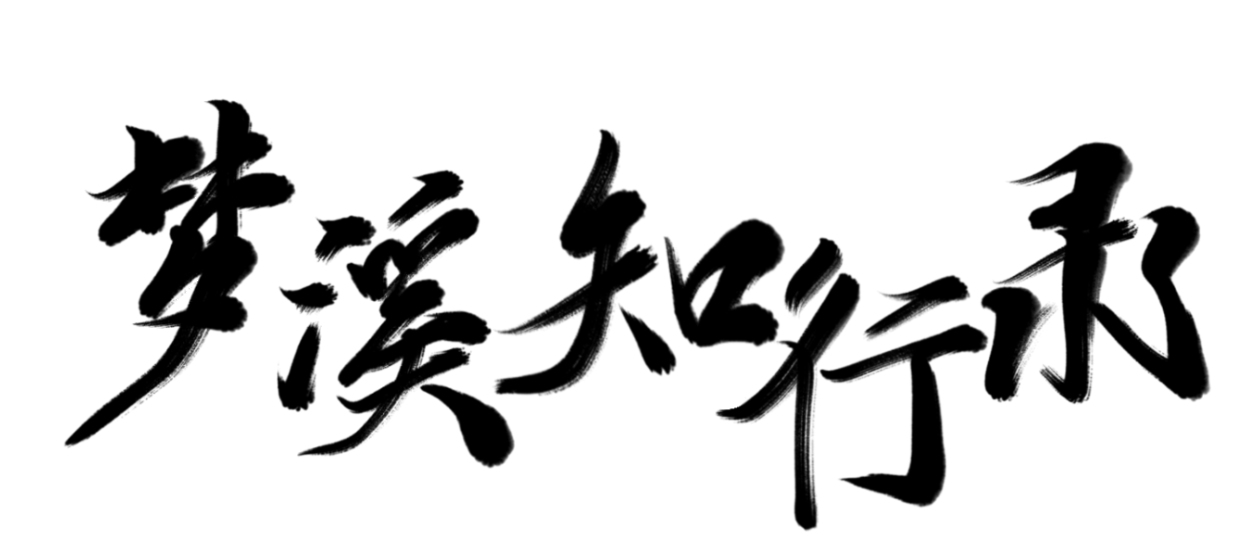 梦溪知行录